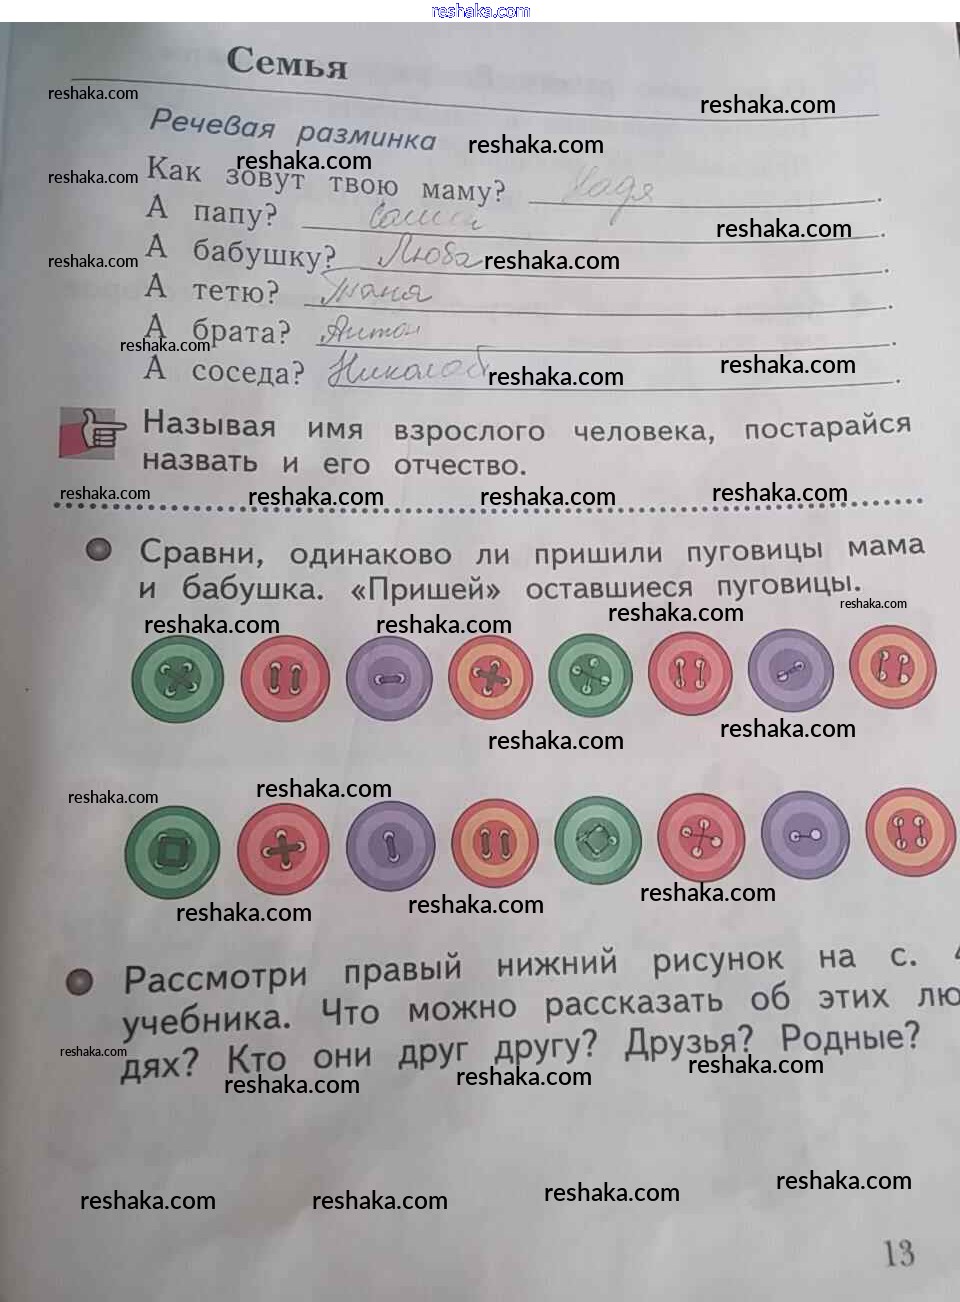 reshaka.com
Семья
reshaka.com
reshaka.com
Речевая разминка
reshaka.com
reshaka.com
Как зовут твою маму? Надя.
reshaka.com
А папу? Саша.
reshaka.com
А бабушку? Люба.
reshaka.com
reshaka.com
А тетю? Таня.
А брата? Антон.
reshaka.com
reshaka.com
А соседа?
reshaka.com
Называя имя взрослого человека, постарайся
назвать и его отчество.
reshaka.com reshaka.com reshaka.com reshaka.com
Сравни, одинаково ли пришили пуговицы мама
и бабушка. «Пришей» оставшиеся пуговицы.
reshaka.com reshaka.com reshaka.com reshaka.com
reshaka.com reshaka.com
reshaka.com reshaka.com
reshaka.com reshaka.com reshaka.com
Рассмотри правый нижний рисунок на с. 4
учебника. Что можно рассказать об этих лю
дях? Кто они друг другу? Друзья? Родные?
reshaka.com reshaka.com reshaka.com reshaka.com
reshaka.com reshaka.com reshaka.com reshaka.com
13